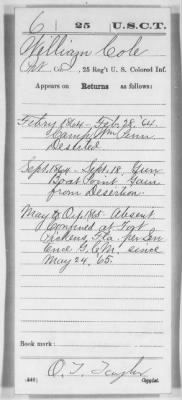 C | 25 | U.S.C.T.
William Cole
Pvt. Co. , 25 Reg't U. S. Colored Inf.
Appears on Returns as follows:
Feby 1864 - Feb. 28, '64.
Camp Wm Penn
Deserted
Sept. 1864 - Sept. 18, Gun
Boat Point Gain
from Desertion.
May to Oct. 1865 Absent
Confined at Fort
Pickens, Fla. per Sen-
tence G.C.M. since
May 24, '65.
Book mark:
O. T. Taylor
Copyist.